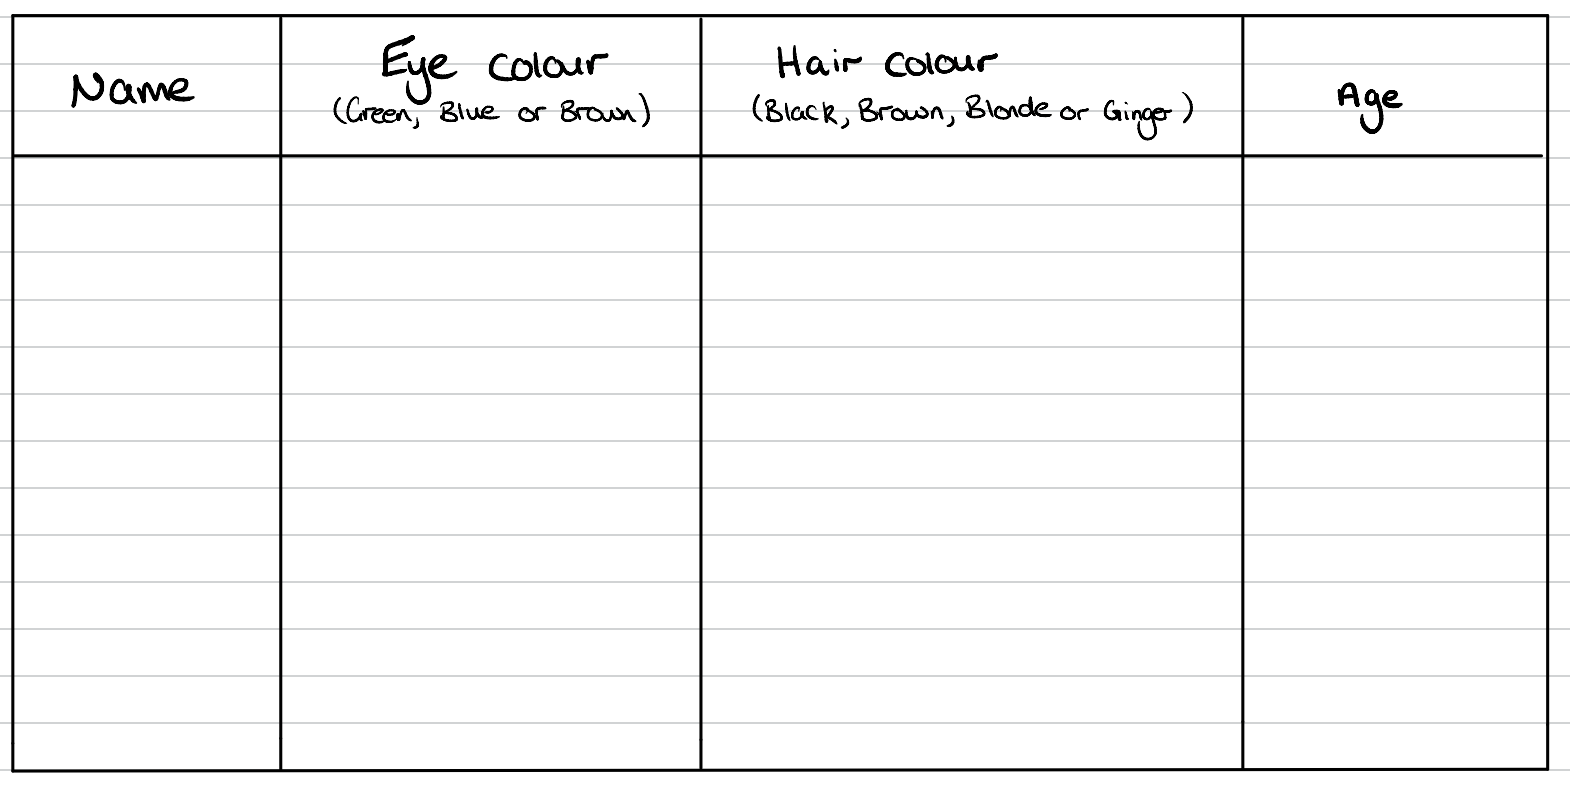 Name
Eye colour
(Green, Blue or Brown)
Hair colour
(Black, Brown, Blonde or Ginger)
Age